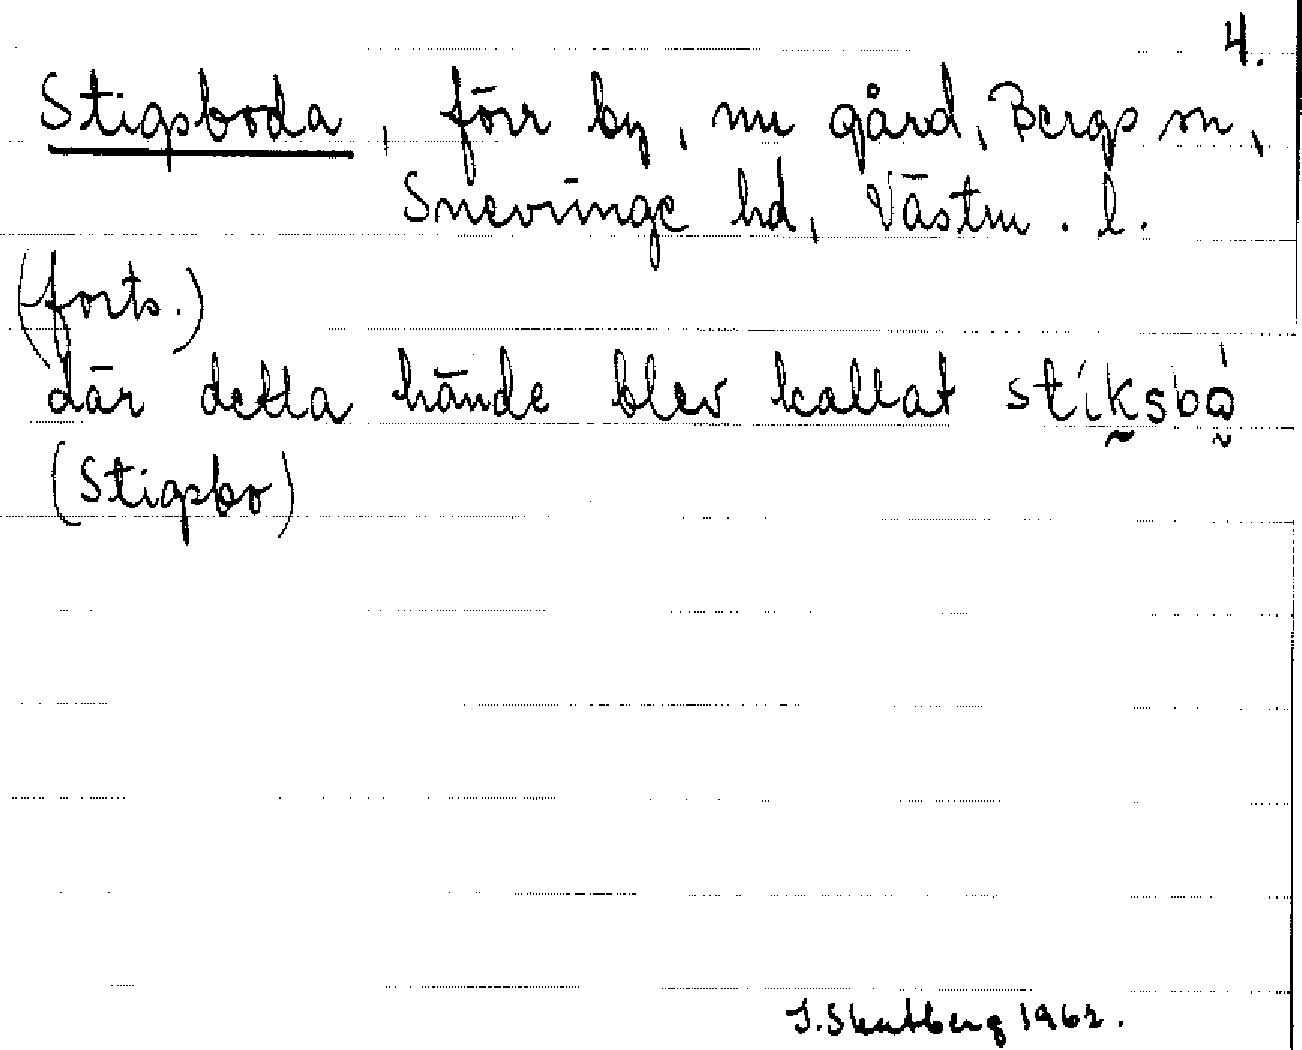 4.
Stigsboda, förr by, nu gård, Bergs sn,
Snevringe hd, Västm. l.
(forts.)
där detta hände blev kallat stiksbo
(Stigsbo)
J. Skutberg 1962.